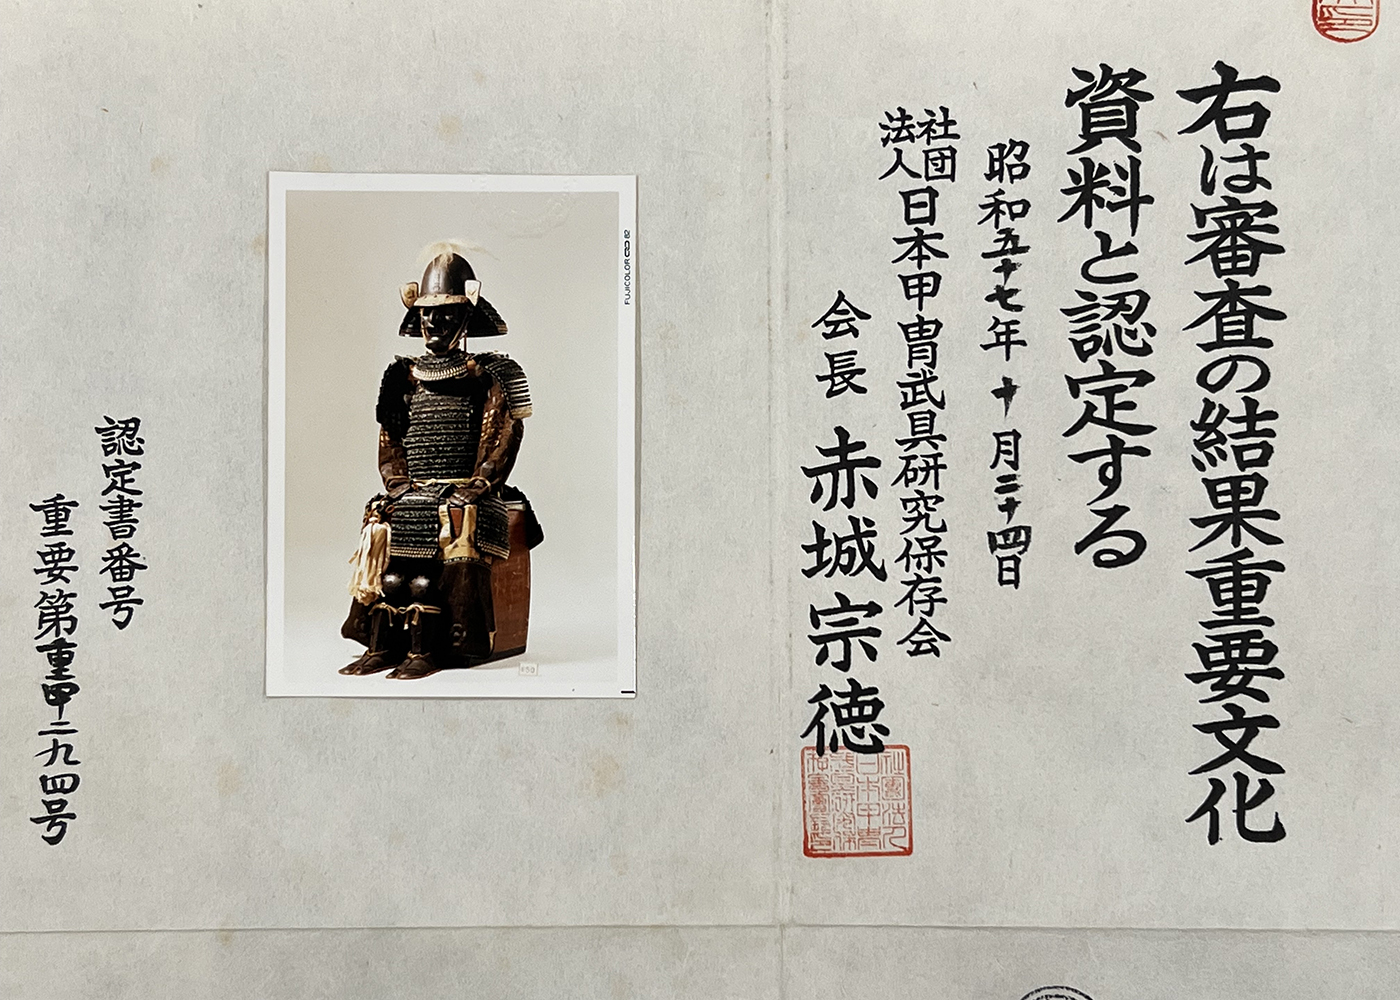 右は審査の結果重要文化
資料と認定する
昭和五十七年十月二十四日
社団
法人
日本甲冑武具研究保存会
会長 赤城宗徳
FUJICOLOR 82
認定書番号
重要第重甲二九四号